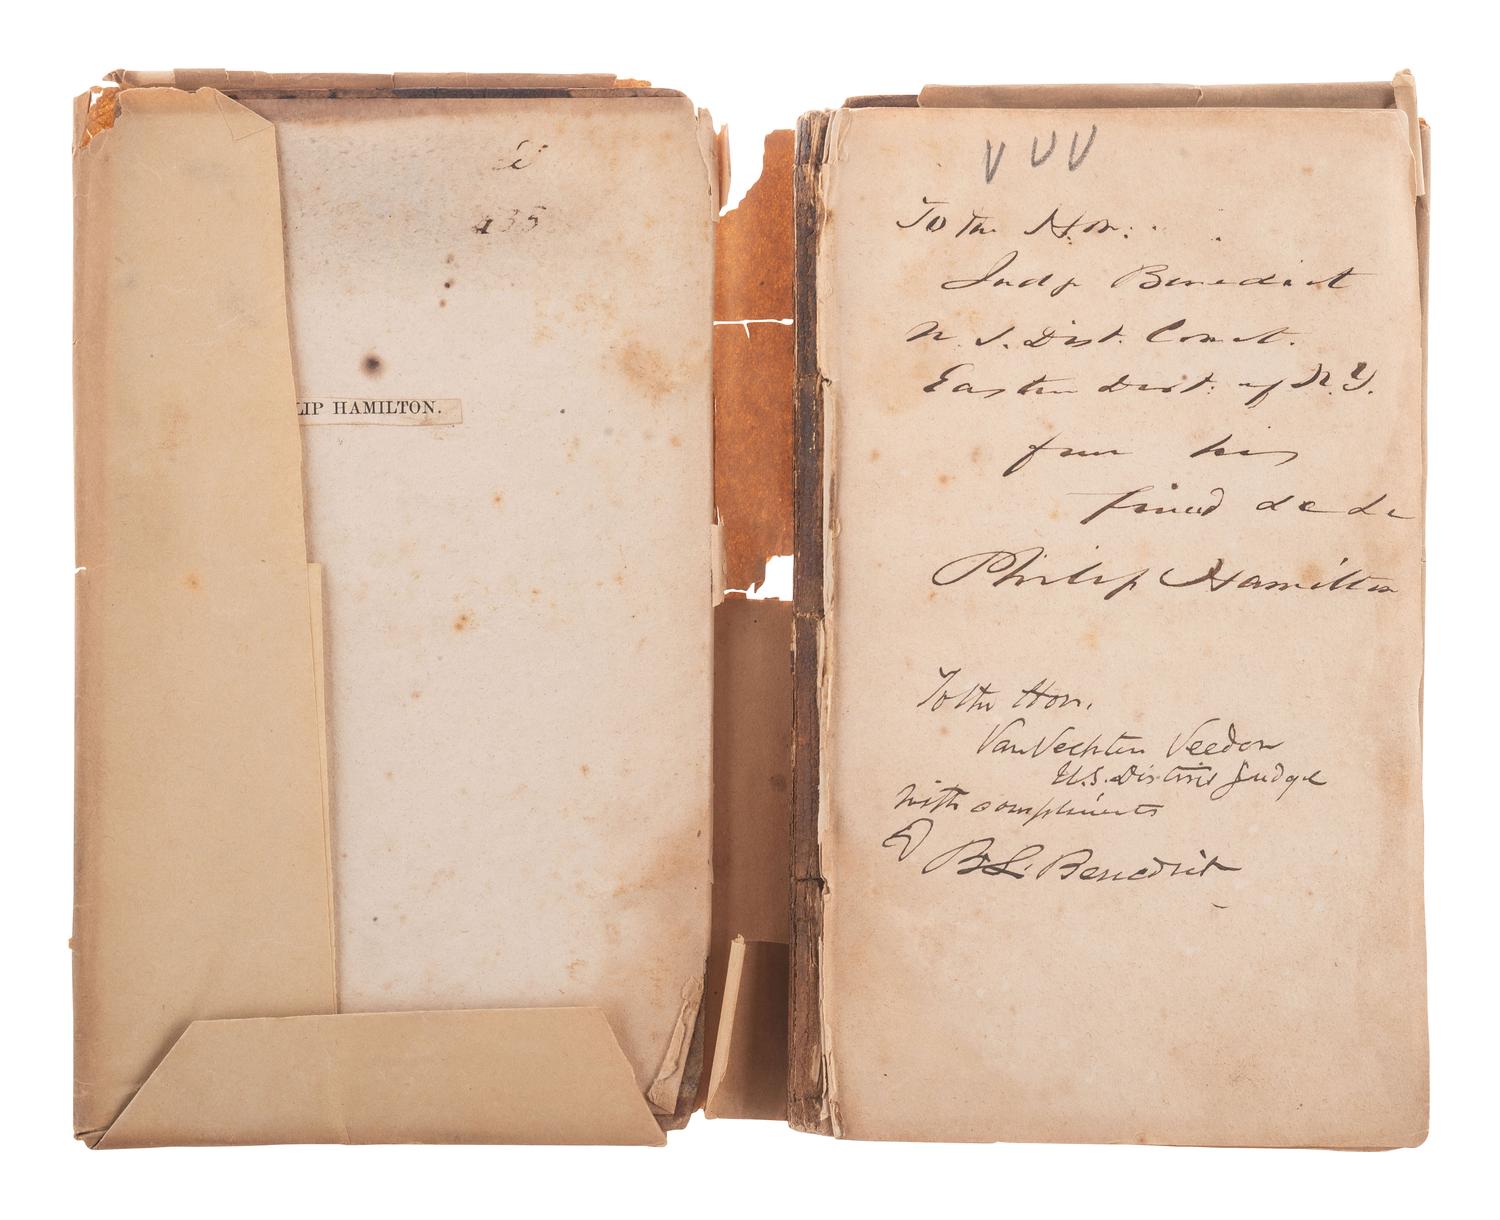 435
LIP HAMILTON.
To the Hon:
Judge Benedict
U. S. Dist. Court.
Eastern Dist. of N. Y.
from his
friend
Philip Hamilton
To the Hon.
Van Vechten Veeder
U.S. District Judge
with compliments
of B L. Benedict